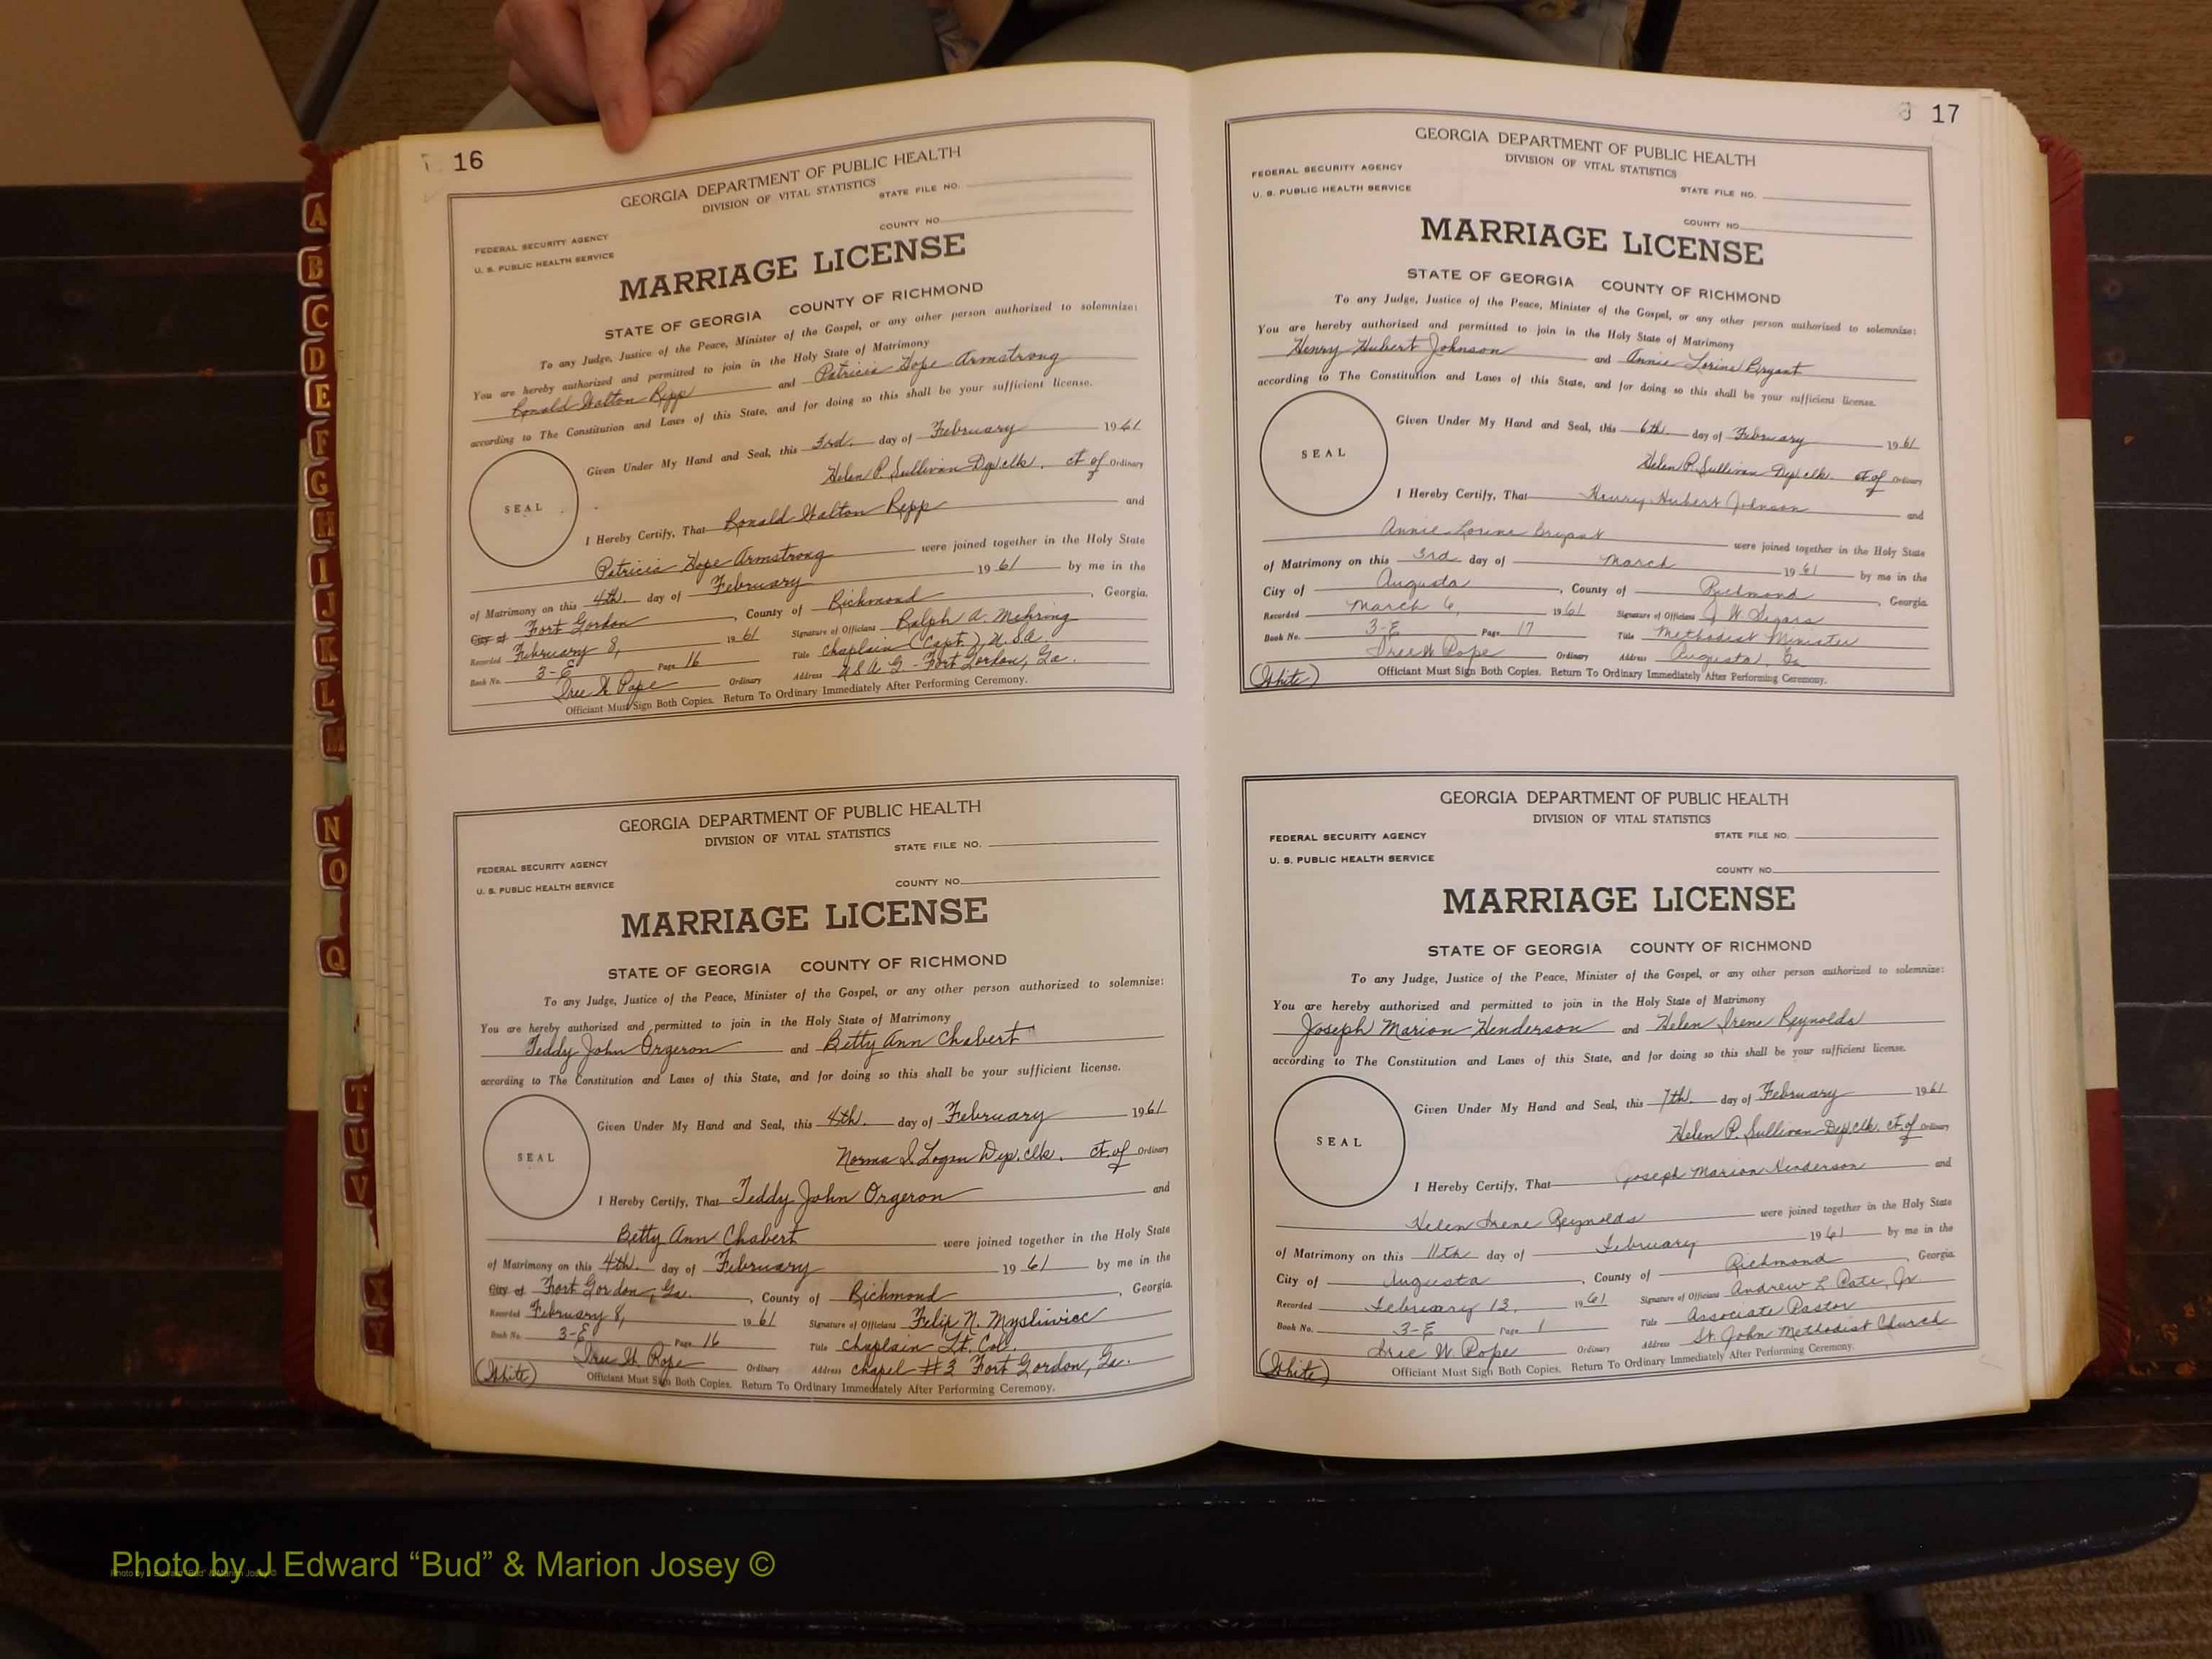 16
GEORGIA DEPARTMENT OF PUBLIC HEALTH
DIVISION OF VITAL STATISTICS
STATE FILE NO.
COUNTY NO.
FEDERAL SECURITY AGENCY
U. S. PUBLIC HEALTH SERVICE
MARRIAGE LICENSE
STATE OF GEORGIA COUNTY OF RICHMOND
To any Judge, Justice of the Peace, Minister of the Gospel, or any other person authorized to solemnize:
You are hereby authorized and permitted to join in the Holy State of Matrimony
Ronald Walton Repp and Patricia Hope Armstrong
according to The Constitution and Laws of this State, and for doing so this shall be your sufficient license.
Given Under My Hand and Seal, this 3rd. day of February 1961
Helen P. Sullivan Dep. clk. ct of Ordinary
SEAL
I Hereby Certify, That Ronald Walton Repp and
Patricia Hope Armstrong were joined together in the Holy State
of Matrimony on this 4th. day of February 19 61 by me in the
City of Fort Gordon, County of Richmond, Georgia.
Recorded February 8, 19 61 Signature of Officiant Ralph A. Mehring
Book No. 3-E Page 16 Title Chaplain (Capt.) U.S.A.
Ordinary Address U S A G - Fort Gordon, Ga.
Officiant Must Sign Both Copies. Return To Ordinary Immediately After Performing Ceremony.
GEORGIA DEPARTMENT OF PUBLIC HEALTH
DIVISION OF VITAL STATISTICS
STATE FILE NO.
FEDERAL SECURITY AGENCY
COUNTY NO.
U. S. PUBLIC HEALTH SERVICE
MARRIAGE LICENSE
STATE OF GEORGIA COUNTY OF RICHMOND
To any Judge, Justice of the Peace, Minister of the Gospel, or any other person authorized to solemnize:
You are hereby authorized and permitted to join in the Holy State of Matrimony
Teddy John Orgeron and Betty Ann Chabert
according to The Constitution and Laws of this State, and for doing so this shall be your sufficient license.
Given Under My Hand and Seal, this 4th. day of February 1961
Norma I. Logan Dep. clk. ct. of Ordinary
SEAL
I Hereby Certify, That Teddy John Orgeron and
Betty Ann Chabert were joined together in the Holy State
of Matrimony on this 4th. day of February 19 61 by me in the
City of Fort Gordon, Ga., County of Richmond, Georgia.
Recorded February 8, 19 61 Signature of Officiant Felix N. Mysliwiec
Book No. 3-E Page 16 Title Chaplain Lt. Col.
Ordinary Address Chapel #3 Fort Gordon, Ga.
(White) Officiant Must Sign Both Copies. Return To Ordinary Immediately After Performing Ceremony.
17
GEORGIA DEPARTMENT OF PUBLIC HEALTH
DIVISION OF VITAL STATISTICS
FEDERAL SECURITY AGENCY
STATE FILE NO.
U. S. PUBLIC HEALTH SERVICE
COUNTY NO.
MARRIAGE LICENSE
STATE OF GEORGIA COUNTY OF RICHMOND
To any Judge, Justice of the Peace, Minister of the Gospel, or any other person authorized to solemnize:
You are hereby authorized and permitted to join in the Holy State of Matrimony
Henry Hubert Johnson and Annie Lorine Bryant
according to The Constitution and Laws of this State, and for doing so this shall be your sufficient license.
Given Under My Hand and Seal, this 6th. day of February 1961
Helen P. Sullivan Dep. clk. ct. of Ordinary
SEAL
I Hereby Certify, That Henry Hubert Johnson and
Annie Lorine Bryant were joined together in the Holy State
of Matrimony on this 3rd day of March 19 61 by me in the
City of Augusta, County of Richmond, Georgia
Recorded March 6, 1961 Signature of Officiant J. W. Segars
Book No. 3-E Page 17 Title Methodist Minister
Ordinary Address Augusta, Ga
(White) Officiant Must Sign Both Copies. Return To Ordinary Immediately After Performing Ceremony.
GEORGIA DEPARTMENT OF PUBLIC HEALTH
DIVISION OF VITAL STATISTICS
FEDERAL SECURITY AGENCY
STATE FILE NO.
U. S. PUBLIC HEALTH SERVICE
COUNTY NO.
MARRIAGE LICENSE
STATE OF GEORGIA COUNTY OF RICHMOND
To any Judge, Justice of the Peace, Minister of the Gospel, or any other person authorized to solemnize:
You are hereby authorized and permitted to join in the Holy State of Matrimony
Joseph Marion Henderson and Helen Irene Reynolds
according to The Constitution and Laws of this State, and for doing so this shall be your sufficient license.
Given Under My Hand and Seal, this 7th. day of February 1961
Helen P. Sullivan Dep. clk. ct. of Ordinary
SEAL
I Hereby Certify, That Joseph Marion Henderson and
Helen Irene Reynolds were joined together in the Holy State
of Matrimony on this 11th day of February 19 61 by me in the
City of Augusta, County of Richmond, Georgia
Recorded February 13, 1961 Signature of Officiant Andrew L. Pate, Jr
Book No. 3-E Page 1 Title Associate Pastor
Ordinary Address St. John Methodist Church
(White) Officiant Must Sign Both Copies. Return To Ordinary Immediately After Performing Ceremony.
A
B
C
D
E
F
G
H
I
J
K
L
M
N
O
Q
T
U
V
X
Y
Photo by J Edward “Bud” & Marion Josey ©
Photo by J Edward "Bud" & Marion Josey ©